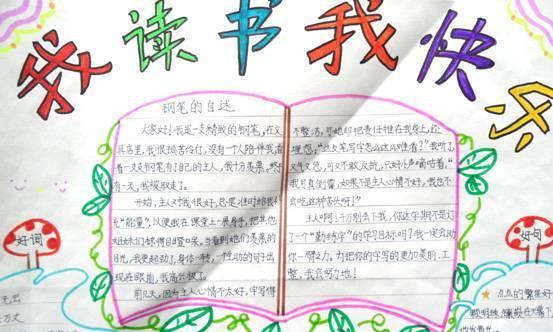 我读书我快乐
钢笔的自述
大家好！我是一支精致的钢笔，在文
具店里，我很孤苦伶仃，没有一个人陪伴我，
看一支支钢笔有了自己的主人，我十分羡慕，终于
有一天，我被取走了。
开始，主人对我很好，总是准时给我
充"能量"，以便我在课堂上一展身手，把其他
目光，我更起劲了，身体一转，一生动的句子出
现在眼前，我高兴极了。
前几天，因为主人心情不太好，字写得
不整洁，可她却把责任推在我身上，还
埋怨："这支笔写字怎么这么难看？"我听了，
又气又怨，可又不敢反抗，只好小声嘀咕着，"
我可真倒霉，如果不是主人心情不好，我也不
会吃这种苦头呀！"
主人啊！千万别丢下我，你这学期不是订
了一个"勤练字"的学习目标吗？我一定会助
你一臂之力，为把你的字写的更加美丽、工
整，我会努力地！
好词
好句